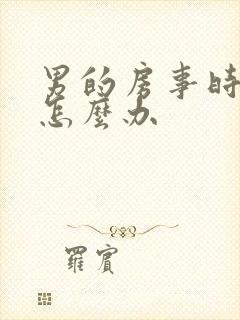 男的房事時
怎麼办
羅賓